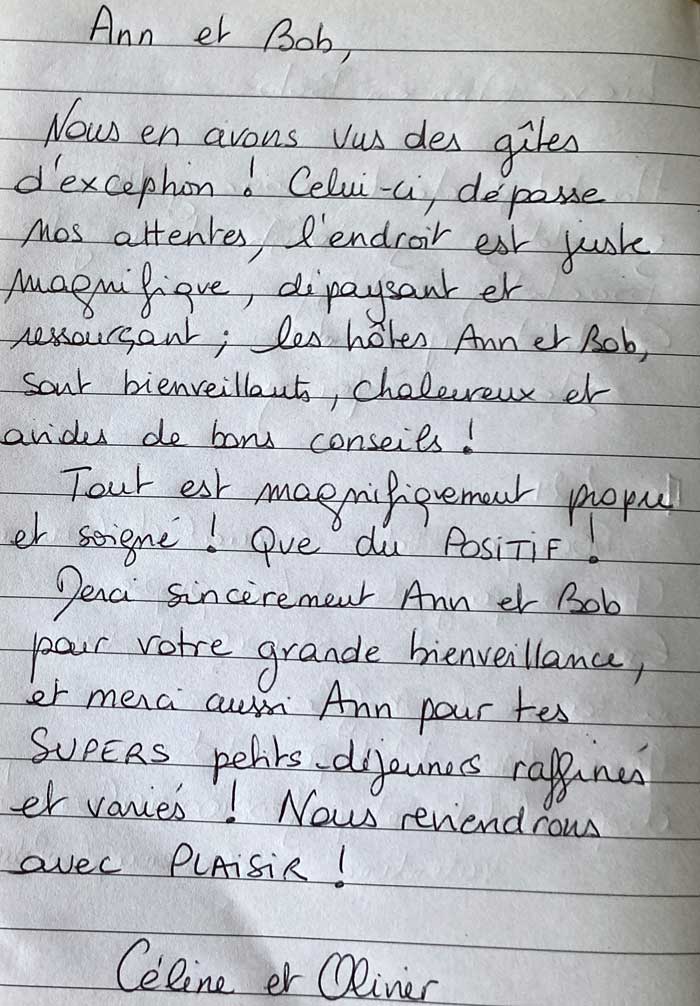 Ann et Bob,
Nous en avons vus des gîtes
d'exception ! Celui-ci, dépasse
nos attentes, l'endroit est juste
magnifique, dépaysant et
ressourçant ; les hôtes Ann et Bob,
sont bienveillants, chaleureux et
avides de bons conseils !
Tout est magnifiquement propre
et soigné ! Que du POSITIF !
Merci sincèrement Ann et Bob
pour votre grande bienveillance,
et merci aussi Ann pour tes
SUPERS petits-déjeuners raffinés
et variés ! Nous reviendrons
avec PLAISIR !
Céline et Olivier